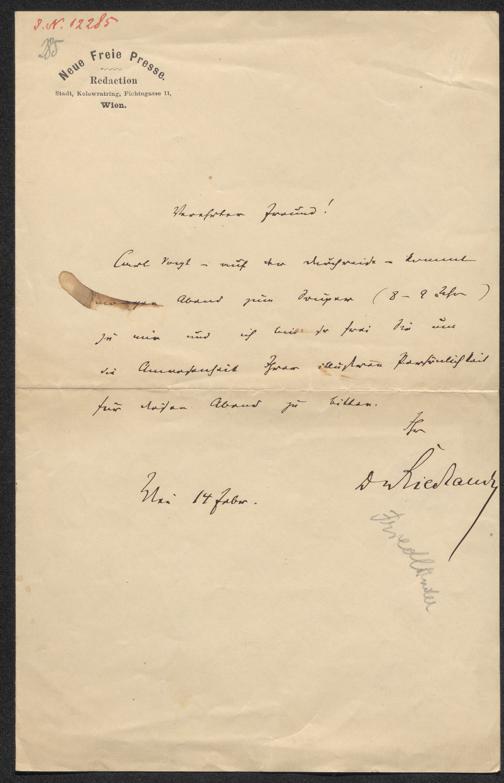 I.N. 12285
285
Neue Freie Presse.
Redaction
Stadt, Kolowratring, Fichtegasse 11,
Wien.
Verehrter Freund!
Carl Vogt – auf der Durchreise – kommt
morgen Abend zum Souper (8–9 Uhr)
zu mir und ich bin so frei Sie um
die Anwesenheit Ihrer illustren Persönlichkeit
für diesen Abend zu bitten.
Ihr
Dr Friedländer
14 Febr.
Friedländer